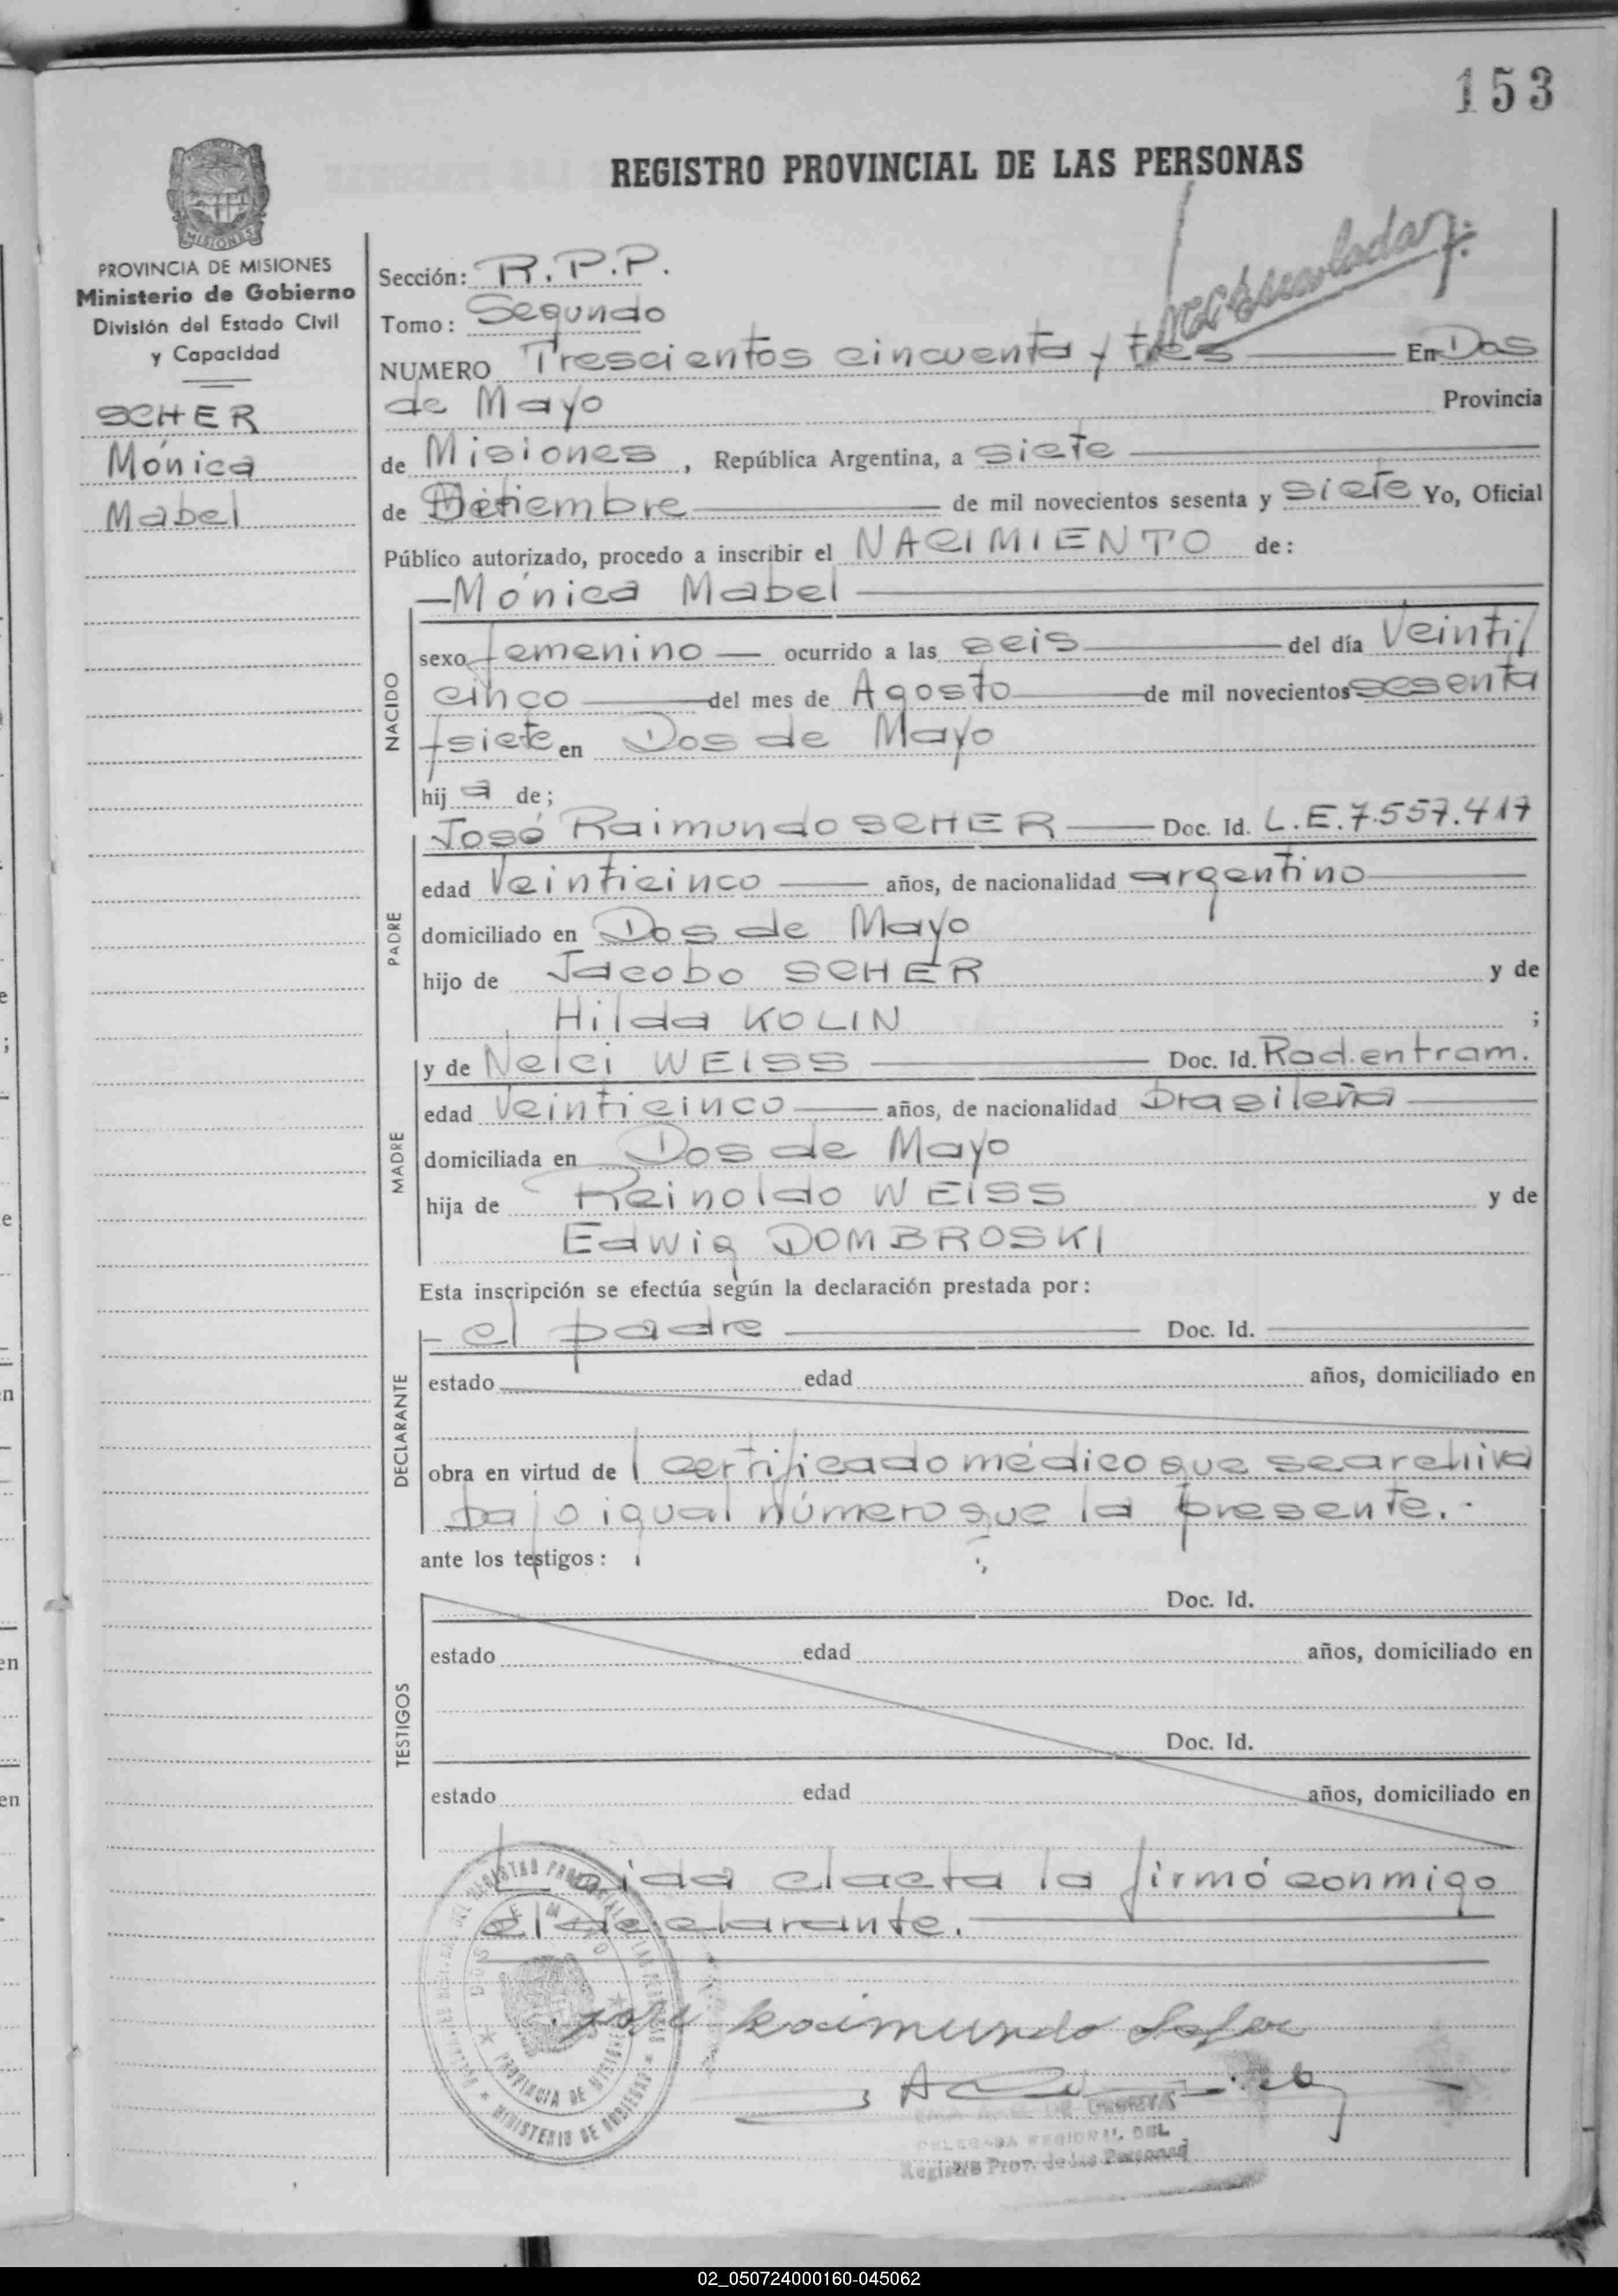 153
REGISTRO PROVINCIAL DE LAS PERSONAS
MISIONES
PROVINCIA DE MISIONES
Ministerio de Gobierno
División del Estado Civil
y Capacidad
SCHER
Mónica
Mabel
Sección: R.P.P.
Tomo: Segundo
NUMERO Trescientos cincuenta y tres En Dos
de Mayo Provincia
de Misiones, República Argentina, a siete
de Setiembre de mil novecientos sesenta y siete Yo, Oficial
Público autorizado, procedo a inscribir el NACIMIENTO de:
Mónica Mabel
NACIDO
sexo femenino ocurrido a las seis del día Veinti
cinco del mes de Agosto de mil novecientos sesenta
y siete en Dos de Mayo
hij a de;
PADRE
José Raimundo SCHER Doc. Id. L.E. 7.557.417
edad Veinticinco años, de nacionalidad argentino
domiciliado en Dos de Mayo
hijo de Jacobo SCHER y de
Hilda KOLIN ;
MADRE
y de Nelci WEISS Doc. Id. Rad. en tram.
edad Veinticinco años, de nacionalidad brasileña
domiciliada en Dos de Mayo
hija de Reinoldo WEISS y de
Edwig DOMBROSKI
Esta inscripción se efectúa según la declaración prestada por:
DECLARANTE
el padre Doc. Id.
estado edad años, domiciliado en
obra en virtud de l certificado médico que se archiva
bajo igual número que la presente.
ante los testigos:
TESTIGOS
Doc. Id.
estado edad años, domiciliado en
Doc. Id.
estado edad años, domiciliado en
Leida el acta la firmó conmigo
el declarante.
José Raimundo
DOS DE MAYO
PROVINCIA DE MISIONES
MINISTERIO DE GOBIERNO
DELEGADA REGIONAL DEL
Registro Prov. de las Personas
02_050724000160-045062